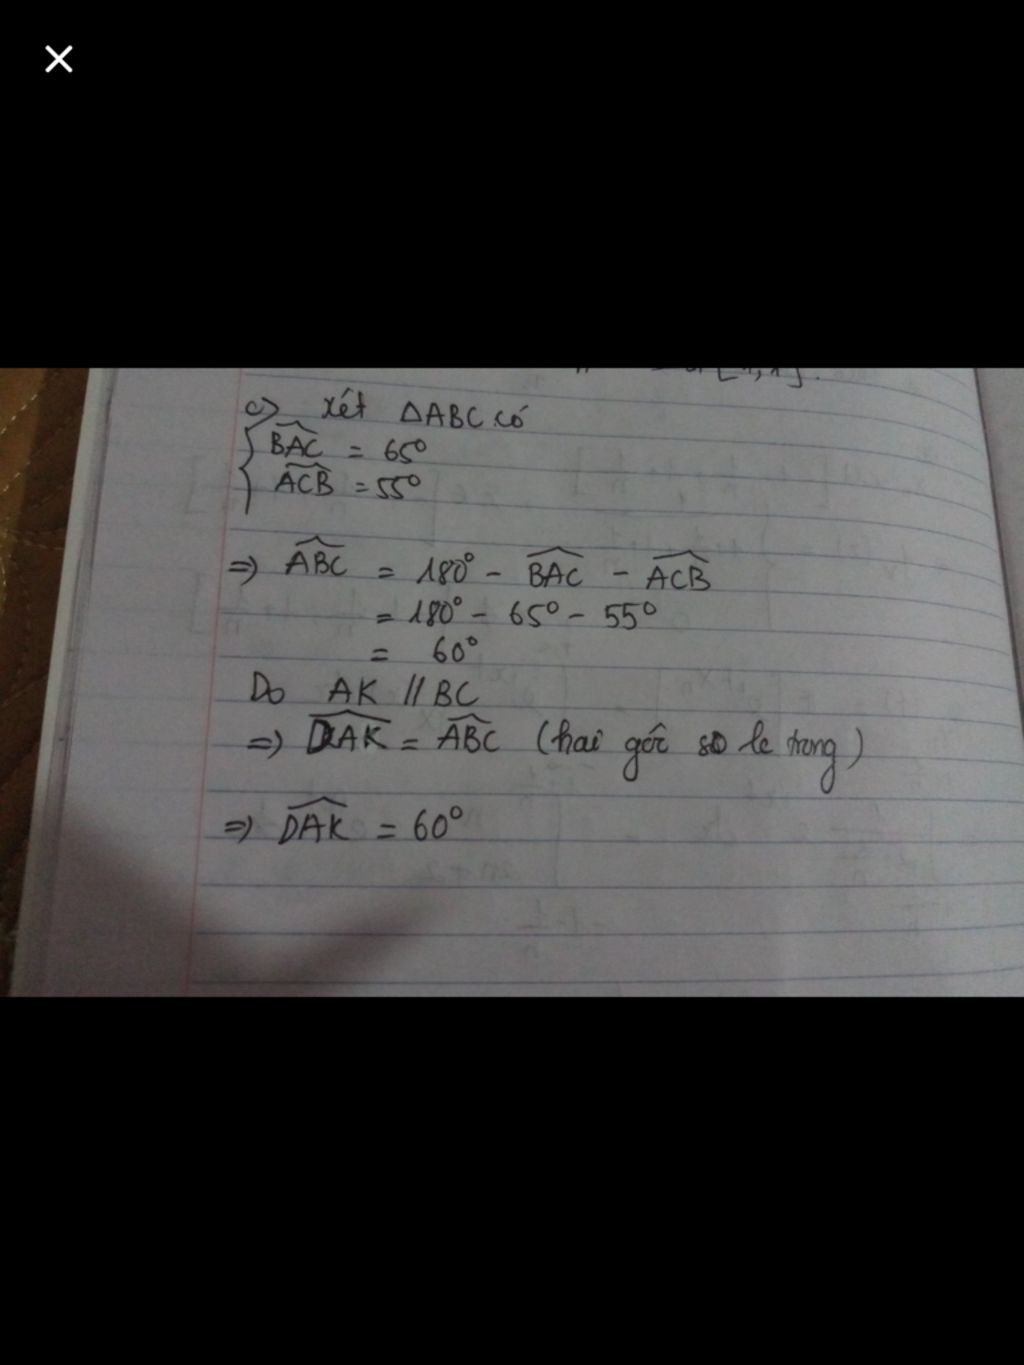 c) xét ΔABC có
{ BAC^ = 65°
{ ACB^ = 55°
=> ABC^ = 180° - BAC^ - ACB^
= 180° - 65° - 55°
= 60°
Do AK // BC
=> DAK^ = ABC^ (hai góc so le trong)
=> DAK^ = 60°